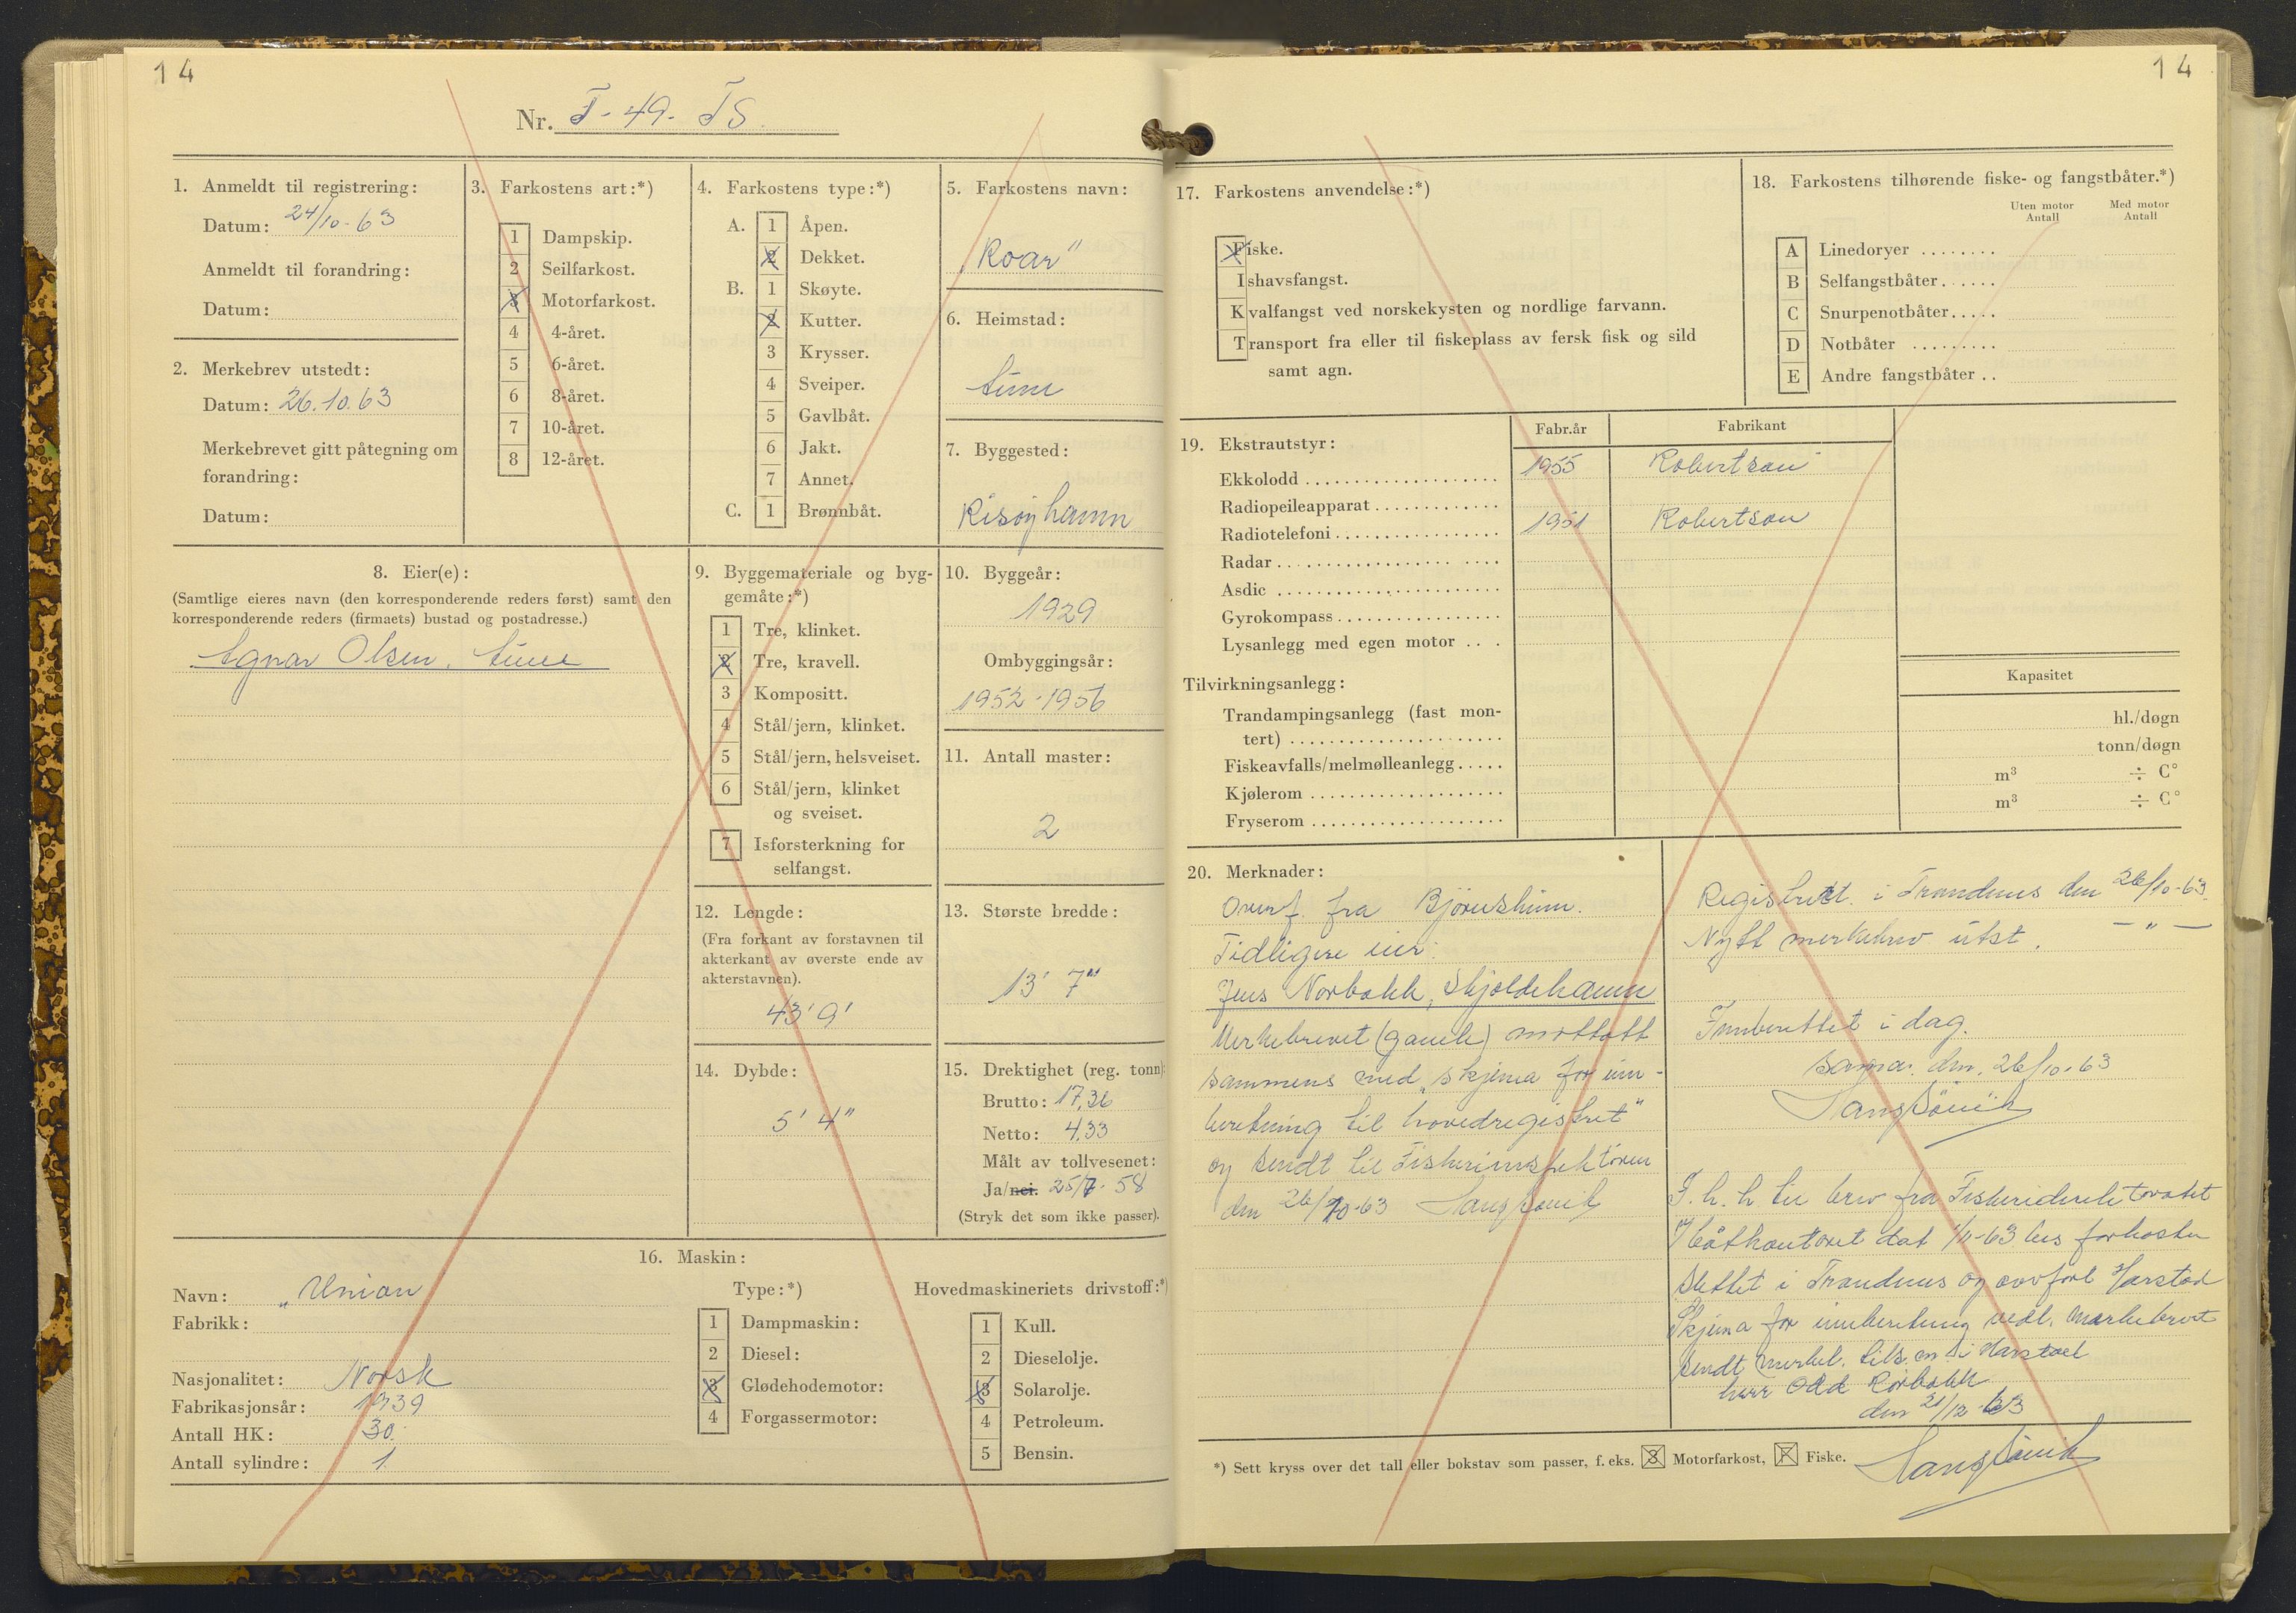 14
Nr. T-49-TS.
1. Anmeldt til registrering:
Datum: 24/10-63
Anmeldt til forandring:
Datum:
2. Merkebrev utstedt:
Datum: 26.10.63
Merkebrevet gitt påtegning om
forandring:
Datum:
3. Farkostens art:*)
1 Dampskip.
2 Seilfarkost.
3 Motorfarkost.
4 4-året.
5 6-året.
6 8-året.
7 10-året.
8 12-året.
4. Farkostens type:*)
A. 1 Åpen.
2 Dekket.
B. 1 Skøyte.
2 Kutter.
3 Krysser.
4 Sveiper.
5 Gavlbåt.
6 Jakt.
7 Annet.
C. 1 Brønnbåt.
5. Farkostens navn:
„Roar"
6. Heimstad:
7. Byggested:
Risøyhamn
8. Eier(e):
(Samtlige eieres navn (den korresponderende reders først) samt den
korresponderende reders (firmaets) bustad og postadresse.)
Agnar Olsen,
9. Byggemateriale og byg-
gemåte:*)
1 Tre, klinket.
2 Tre, kravell.
3 Kompositt.
4 Stål/jern, klinket.
5 Stål/jern, helsveiset.
6 Stål/jern, klinket
og sveiset.
7 Isforsterkning for
selfangst.
10. Byggeår:
1929
Ombyggingsår:
1952-1956
11. Antall master:
2
12. Lengde:
(Fra forkant av forstavnen til
akterkant av øverste ende av
akterstavnen).
43' 9'
13. Største bredde:
13' 7"
14. Dybde:
5' 4"
15. Drektighet (reg. tonn):
Brutto: 17,36
Netto: 4,33
Målt av tollvesenet:
Ja/nei. 25/7-58
(Stryk det som ikke passer).
16. Maskin:
Navn: „Union
Fabrikk:
Nasjonalitet: Norsk
Fabrikasjonsår: 1939
Antall HK: 30.
Antall sylindre: 1
Type:*)
1 Dampmaskin:
2 Diesel:
3 Glødehodemotor:
4 Forgassermotor:
Hovedmaskineriets drivstoff:*)
1 Kull.
2 Dieselolje.
3 Solarolje.
4 Petroleum.
5 Bensin.
14
17. Farkostens anvendelse:*)
Fiske.
Ishavsfangst.
Kvalfangst ved norskekysten og nordlige farvann.
Transport fra eller til fiskeplass av fersk fisk og sild
samt agn.
18. Farkostens tilhørende fiske- og fangstbåter.*)
Uten motor Antall
Med motor Antall
A Linedoryer
B Selfangstbåter
C Snurpenotbåter
D Notbåter
E Andre fangstbåter
19. Ekstrautstyr:
Fabr.år Fabrikant
Ekkolodd 1955 Robertson
Radiopeileapparat
Radiotelefoni 1951 Robertson
Radar
Asdic
Gyrokompass
Lysanlegg med egen motor
Tilvirkningsanlegg:
Kapasitet
Trandampingsanlegg (fast mon-
tert) hl./døgn
Fiskeavfalls/melmølleanlegg tonn/døgn
Kjølerom m³ ÷ C°
Fryserom m³ ÷ C°
20. Merknader:
Overf. fra Bjørnskinn.
Tidligere eier:
Jens Norbakk, Skjoldehamn
Merkebrevet (gamle) mottatt
sammens med „skjema for inn-
beretning til hovedregistret"
og sendt til Fiskeriinspektøren
den 26/10-63
Registrert. i Trondenes den 26/10-63.
Nytt merkebrev utst. — " —
Innberettet i dag.
den. 26/10-63
F. h. h til brev fra Fiskeridirektoratet
Båtkontoret dat 1/11-63 farkosten
slettet i Trondenes og overført Harstad
Skjema for innberetning vedl. Merkebrevet
sendt merkel. tils. m. i Harstad
herr Odd
den 21/12-63
*) Sett kryss over det tall eller bokstav som passer, f. eks. 3 Motorfarkost, F Fiske.